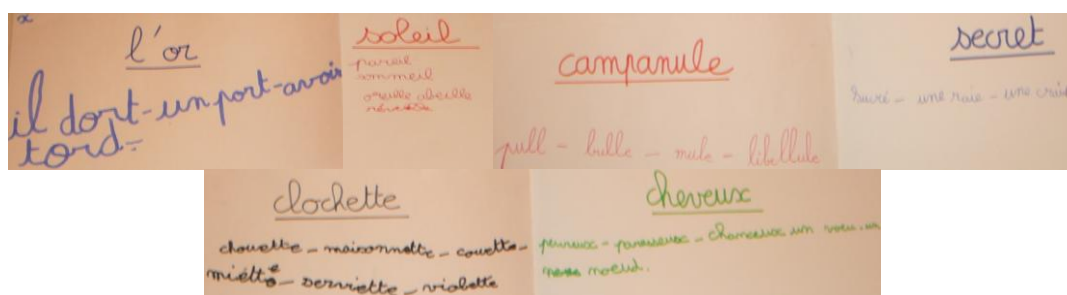 l'or
il dort-un port-avoir
tord-
soleil
pareil
sommeil
oreille abeille
campanule
pull - bulle - mule - libellule
secret
sucré - une raie - une craie
clochette
chouette - maisonnette - couette -
miette - serviette - violette
cheveux
peureux - paresseux - chanceux un voeu - un
noeud.